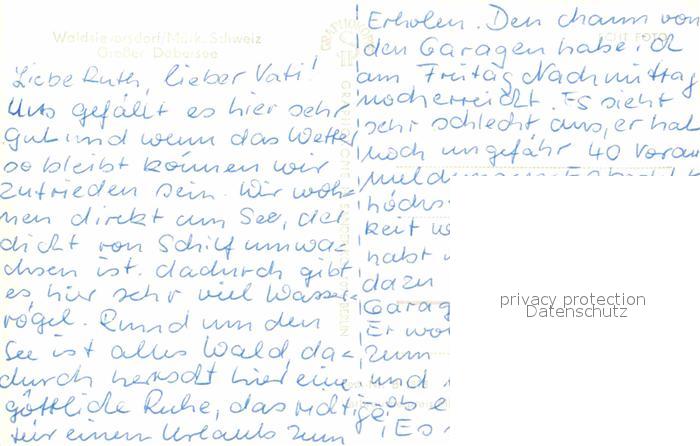 Waldsieversdorf/Märk. Schweiz
Großer Däbersee
Liebe Ruth, lieber Vati!
Uns gefällt es hier sehr
gut und wenn das Wetter
so bleibt können wir
zufrieden sein. Wir woh-
nen direkt am See, der
dicht von Schilf umwa-
chsen ist. dadurch gibt
es hier sehr viel Wasser-
vögel. Rund um den
See ist alles Wald, da-
durch herrscht hier eine
göttliche Ruhe, das richtige
für einen Urlaub zum
Erholen. Den chann von
den Garagen habe ich
am Freitag Nachmittag
noch erreicht. Es sieht
sehr schlecht aus, er hat
noch ungefähr 40 Voran
meldungen
höchs
keit w
habt
dazu
Garag
Er wo
zum
und
ob e
Es
ECHT FOTO
privacy protection
Datenschutz